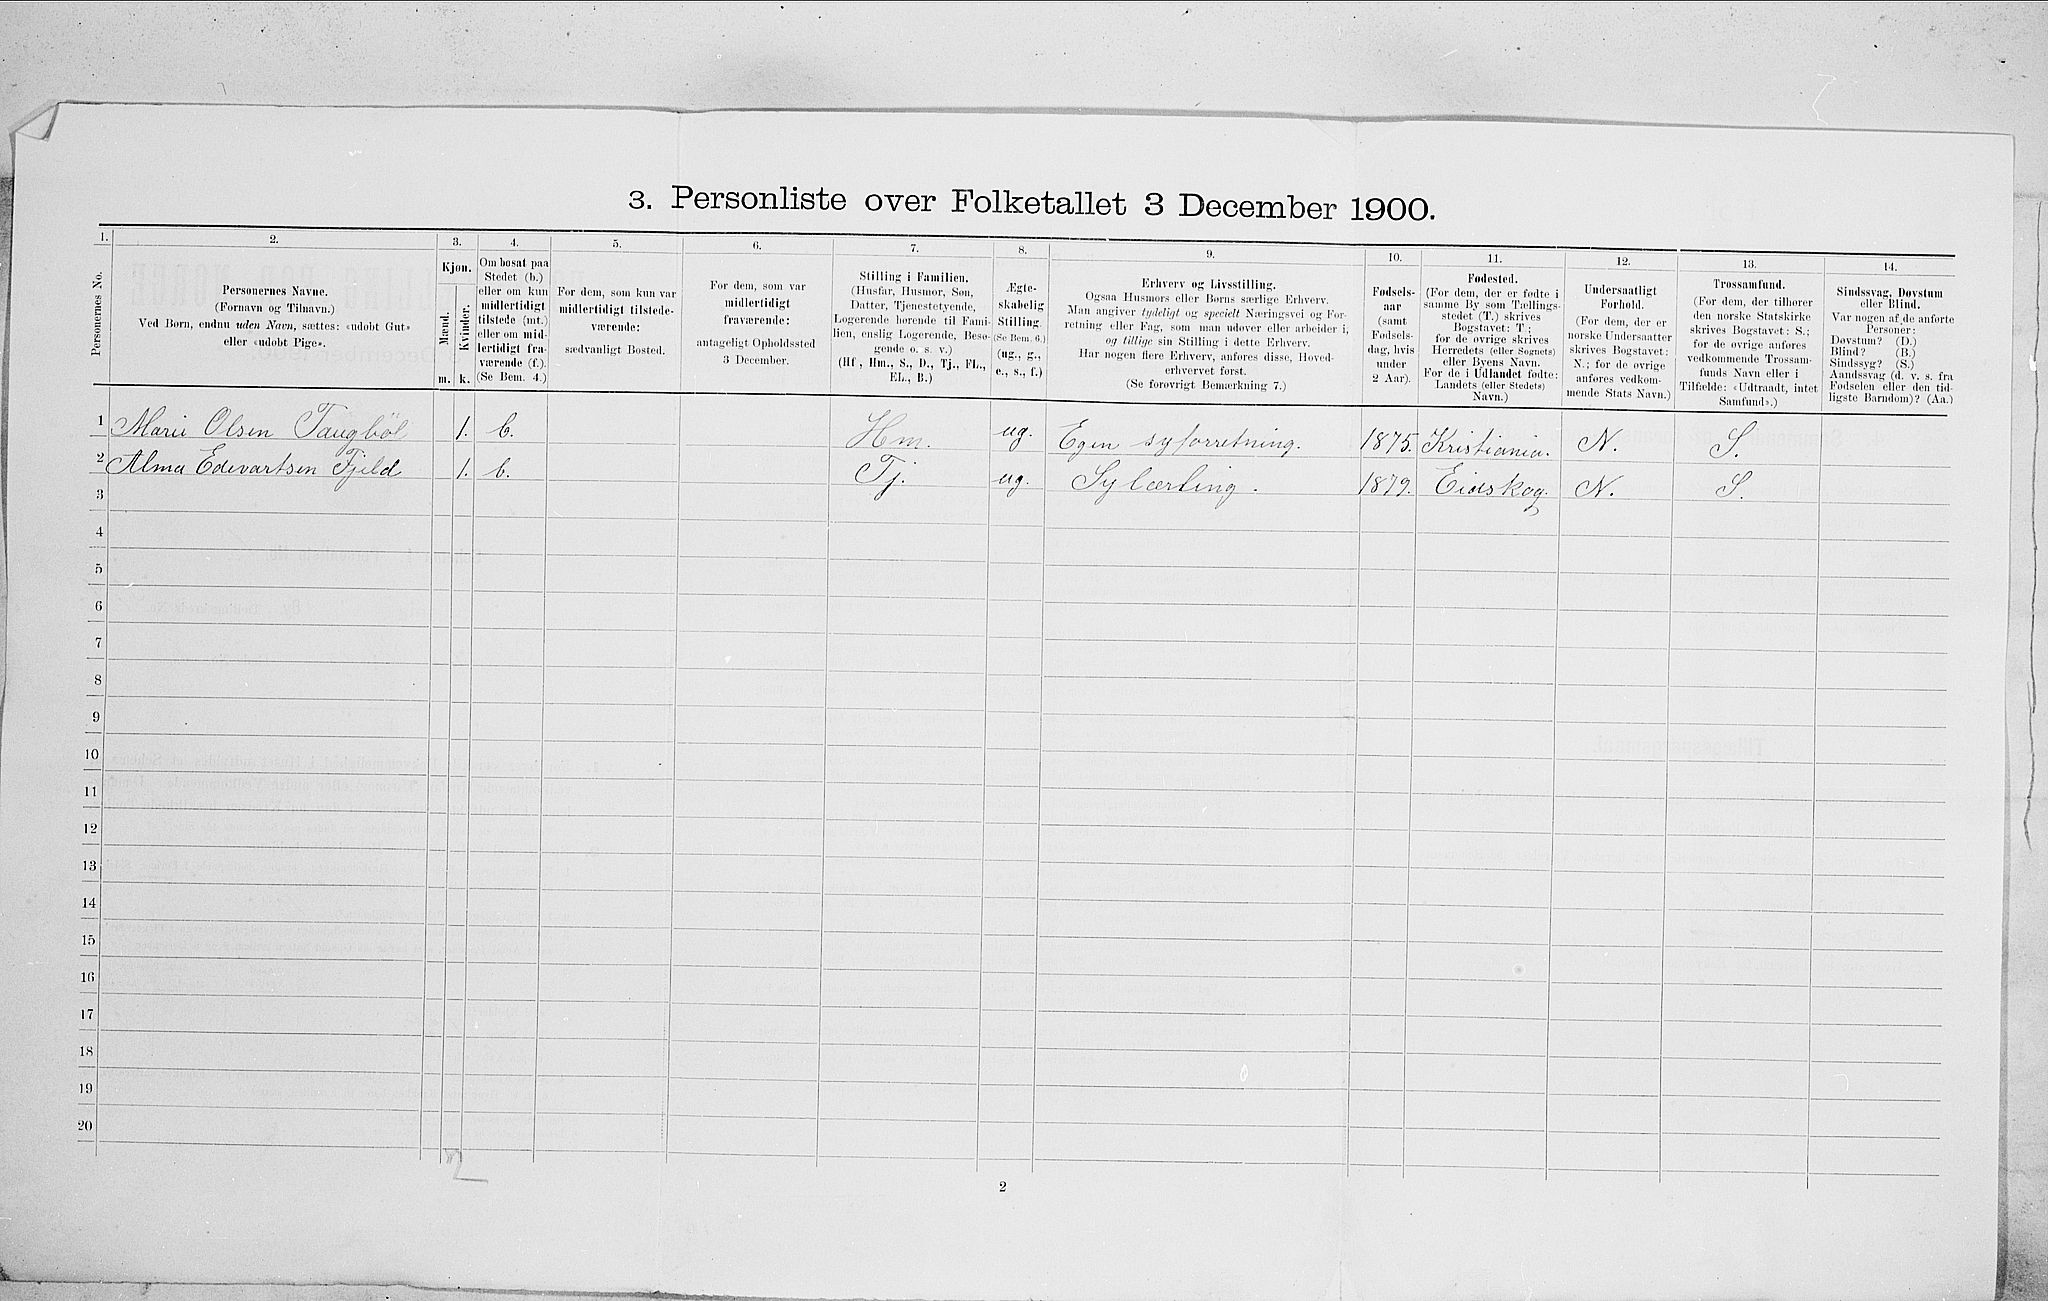 3. Personliste over Folketallet 3 December 1900.
1. 2. 3. 4. 5. 6. 7. 8. 9. 10. 11. 12. 13. 14.
Personernes No.
Personernes Navne.
(Fornavn og Tilnavn.)
Ved Børn, endnu uden Navn, sættes: «udøbt Gut»
eller «udøbt Pige».
Kjøn.
Mænd.
Kvinder.
m. k.
Om bosat paa
Stedet (b.)
eller om kun
midlertidigt
tilstede (mt.)
eller om mid-
lertidigt fra-
værende (f.).
(Se Bem. 4.)
For dem, som kun var
midlertidigt tilstede-
værende:
sædvanligt Bosted.
For dem, som var
midlertidigt
fraværende:
antageligt Opholdssted
3 December.
Stilling i Familien.
(Husfar, Husmor, Søn,
Datter, Tjenestetyende,
Logerende hørende til Fami-
lien, enslig Logerende, Besø-
gende o. s. v.)
(Hf, Hm., S., D., Tj., FL.,
EL., B.)
Ægte-
skabelig
Stilling.
(Se Bem. 6.)
(ug., g.,
e., s., f.)
Erhverv og Livsstilling.
Ogsaa Husmors eller Børns særlige Erhverv.
Man angiver tydeligt og specielt Næringsvei og For-
retning eller Fag, som man udøver eller arbeider i,
og tillige sin Stilling i dette Erhverv.
Har nogen flere Erhverv, anføres disse, Hoved-
erhvervet først.
(Se forøvrigt Bemærkning 7.)
Fødsels-
aar
(samt
Fødsels-
dag, hvis
under
2 Aar).
Fødested.
(For dem, der er fødte i
samme By som Tællings-
stedet (T.) skrives
Bogstavet: T.;
for de øvrige skrives
Herredets (eller Sognets)
eller Byens Navn.
For de i Udlandet fødte:
Landets (eller Stedets)
Navn.)
Undersaatligt
Forhold.
(For dem, der er
norske Undersaatter
skrives Bogstavet:
N.; for de øvrige
anføres vedkom-
mende Stats Navn.)
Trossamfund.
(For dem, der tilhører
den norske Statskirke
skrives Bogstavet: S.;
for de øvrige anføres
vedkommende Trossam-
funds Navn eller i
Tilfælde: «Udtraadt, intet
Samfund».)
Sindssvag, Døvstum
eller Blind.
Var nogen af de anførte
Personer:
Døvstum? (D.)
Blind? (B.)
Sindssyg? (S.)
Aandssvag (d. v. s. fra
Fødselen eller den tid-
ligste Barndom)? (Aa.)
1 Marie Olsen Taugbøl 1. b. Hm. ug. Egen syforretning. 1875. Kristiania. N. S.
2 Alma Edevartsen Fjeld 1. b. Tj. ug. Sylærling. 1879. Eidskog. N. S.
3
4
5
6
7
8
9
10
11
12
13
14
15
16
17
18
19
20
2
2